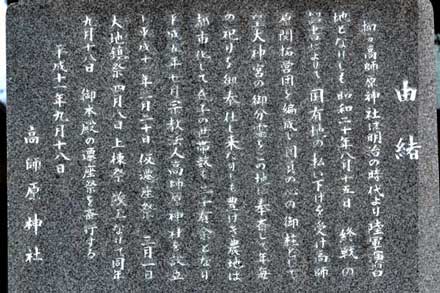 由緒
抑々高師原神社は明治の時代より陸軍演習
地となりしも昭和二十年八月十五日 終戦の
詔書によって国有地の払い下げを受け高師
原開拓団を編成し団員の心の御柱として
皇大神宮の御分霊をこの地に奉斎して年毎
の祀りを御奉仕し来たりしも豊けき農地は
都市化して氏子の世帯数も二千有余となり
平成九年七月宗教法人高師原神社を設立
し平成十一年二月二十日仮遷座祭 三月一日
大地鎮祭四月八日上棟祭 竣工なりて同年
九月十八日 御本殿の遷座祭を斎行する
平成十一年九月十八日
高師原神社